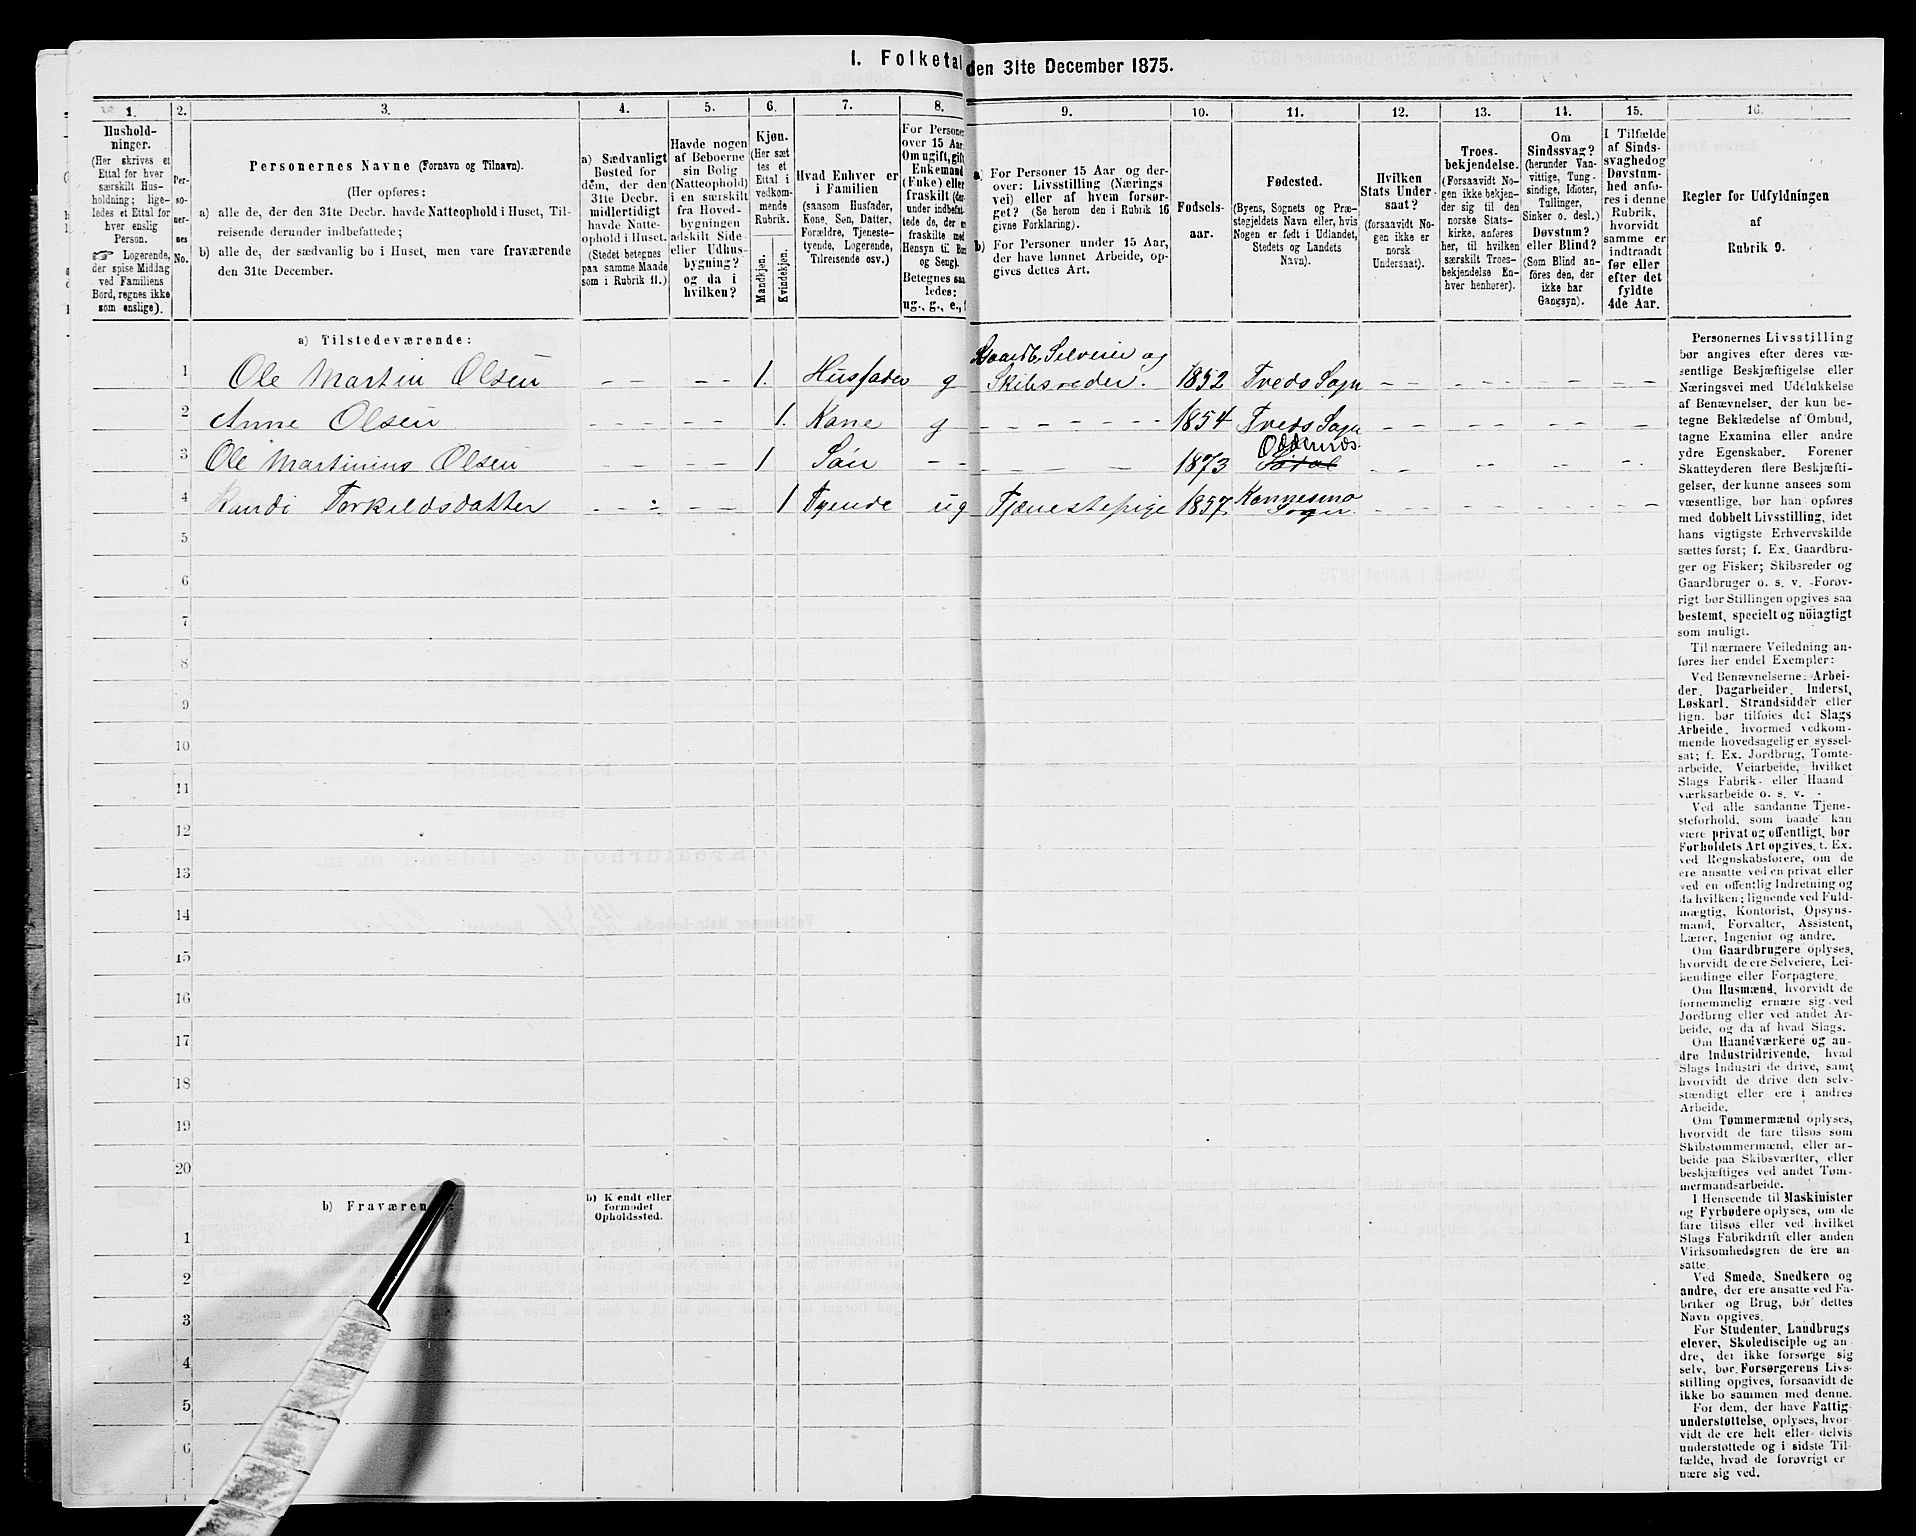 I. Folketal den 31te December 1875.
1.
2.
3.
4.
5.
6.
7.
8.
9.
10.
11.
12.
13.
14.
15.
16.
Hushold-
ninger.
(Her skrives et
Ettal for hver
særskilt Hus-
holdning; lige-
ledes et Ettal for
hver enslig
Person.
☞ Logerende,
der spise Middag
ved Familiens
Bord, regnes ikke
som enslige).
Per-
so-
ner-
nes
No.
Personernes Navne (Fornavn og Tilnavn).
(Her opføres:
a) alle de, der den 31te Decbr. havde Natteophold i Huset, Til-
reisende derunder indbefattede;
b) alle de, der sædvanlig bo i Huset, men vare fraværende
den 31te December.
a) Sædvanligt
Bosted for
dem, der den
31te Decbr.
midlertidigt
havde Natte-
ophold i Huset.
(Stedet betegnes
paa samme Maade
som i Rubrik 11.)
Havde nogen
af Beboerne
sin Bolig
(Natteophold)
i en særskilt
fra Hoved-
bygningen
adskilt Side-
eller Udhus-
bygning?
og da i
hvilken?
Kjøn.
(Her sæt
tes et
Ettal i
vedkom-
mende
Rubrik.
Mandkjøn.
Kvindekjøn.
Hvad Enhver er
i Familien
(saasom Husfader,
Kone, Søn, Datter,
Forældre, Tjeneste-
tyende, Logerende,
Tilreisende osv.)
For Personer
over 15 Aar
Om ugift, gift
Enkemand
(Enke) eller
fraskilt (der-
under indbefat-
tede de, der er
fraskilte med
Hensyn til Bord
og Seng).
Betegnes saa
ledes:
ug., g., e.,
a) For Personer 15 Aar og der-
over: Livsstilling (Nærings
vei) eller af hvem forsør-
get? (Se herom den i Rubrik 16
givne Forklaring).
b) For Personer under 15 Aar,
der have lønnet Arbeide, op-
gives dettes Art.
Fødsels-
aar.
Fødested.
(Byens, Sognets og Præ-
stegjeldets Navn eller, hvis
Nogen er født i Udlandet,
Stedets og Landets
Navn).
Hvilken
Stats Under-
saat?
(forsaavidt No-
gen ikke er
norsk
Undersaat).
Troes-
bekjendelse.
(Forsaavidt No-
gen ikke bekjen-
der sig til den
norske Stats-
kirke, anføres
her, til hvilken
særskilt Troes-
bekjendelse En-
hver henhører).
Om
Sindssvag?
(herunder Van-
vittige, Tung-
sindige, Idioter,
Tullinger,
Sinker o. desl.)
Døvstum?
eller Blind?
(Som Blind an-
føres den, der
ikke har
Gangsyn).
I Tilfælde
af Sinds-
svaghed og
Døvstum-
hed anfø-
res i denne
Rubrik,
hvorvidt
samme er
indtraadt
før eller
efter det
fyldte
4de Aar.
Regler for Udfyldningen
af
Rubrik 9.
a) Tilstedeværende:
Gaardb. Selveier og
1 Ole Martin Olsen - - - - 1. Husfader g Skibsreder. 1852 Tveds Sogn - - - - -
2 Anne Olsen - - - - 1. Kone g - - - - - - 1854 Tveds Sogn - - - - -
Oddernes
3 Ole Martinius Olsen - - - - 1 Søn - - - - - - 1873 - - - - -
4 Randi Torkildsdatter - - 1 Tyende ug Tjenestepige 1857. Kannesmo
Sogn.
5
6
7
8
9
10
11
12
13
14
15
16
17
18
19
20
b) Fraværende:
b) Kjendt eller
formodet
Opholdssted.
1
2
3
4
5
6
Personernes Livsstilling
bør angives efter deres væ-
sentlige Beskjæftigelse eller
Næringsvei med Udelukkelse
af Benævnelser, der kun be-
tegne Beklædelse af Ombud,
tagne Examina eller andre
ydre Egenskaber. Forener
Skatteyderen flere Beskjæfti-
gelser, der kunne ansees som
væsentlige, bør han opføres
med dobbelt Livsstilling, idet
hans vigtigste Erhvervskilde
sættes først; f. Ex. Gaardbru-
ger og Fisker; Skibsreder og
Gaardbruger o. s. v. Forøv-
rigt bør Stillingen opgives saa
bestemt, specielt og nöiagtigt
som muligt.
Til nærmere Veiledning an-
føres her endel Exempler:
Ved Benævnelserne: Arbei-
der, Dagarbeider, Inderst,
Løskarl, Strandsidder eller
lign. bør tilføies det Slags
Arbeide, hvormed vedkom-
mende hovedsagelig er syssel-
sat; f. Ex. Jordbrug, Tomte-
arbeide, Veiarbeide, hvilket
Slags Fabrik- eller Haand
værksarbeide o. s. v.
Ved alle saadanne Tjene-
steforhold, som baade kan
være privat og offentligt, bør
Forholdets Art opgives, f. Ex.
ved Regnskabsførere, om de
ere ansatte ved en privat eller
ved en offentlig Indretning og
da hvilken; lignende ved Fuld-
mægtig, Kontorist, Opsyns-
mand, Forvalter, Assistent,
Lærer, Ingeniør og andre.
Om Gaardbrugere oplyses,
hvorvidt de ere Selveiere, Lei-
lændinge eller Forpagtere.
Om Husmænd, hvorvidt de
fornemmelig ernære sig ved
Jordbrug eller ved andet Ar-
beide, og da af hvad Slags.
Om Haandværkere og an-
dre Industridrivende, hvad
Slags Industri de drive, samt
hvorvidt de drive den selv-
stændigt eller ere i andres
Arbeide.
Om Tømmermænd oplyses,
hvorvidt de fare tilsøs som
Skibstømmermænd, eller ar-
beide paa Skibsværfter, eller
beskjæftiges ved andet Tøm-
mermandsarbeide.
I Henseende til Maskinister
og Fyrbødere oplyses, om de
fare tilsøs eller ved hvilket
Slags Fabrikdrift eller anden
Virksomhedsgren de ere an-
satte.
Ved Smede, Snedkere og
andre, der ere ansatte ved Fa-
briker og Brug, bør dettes
Navn opgives.
For Studenter, Landbrugs
elever, Skoledisciple og an-
dre, der ikke forsørge sig
selv, bør Forsørgerens Livs-
stilling opgives, forsaavidt de
ikke bo sammen med denne.
For dem, der have Fattig
understøttelse, oplyses, hvor-
vidt de ere helt eller delvis
understøttede og i sidste Til-
fælde, hvad de forøvrigt er
nære sig ved.